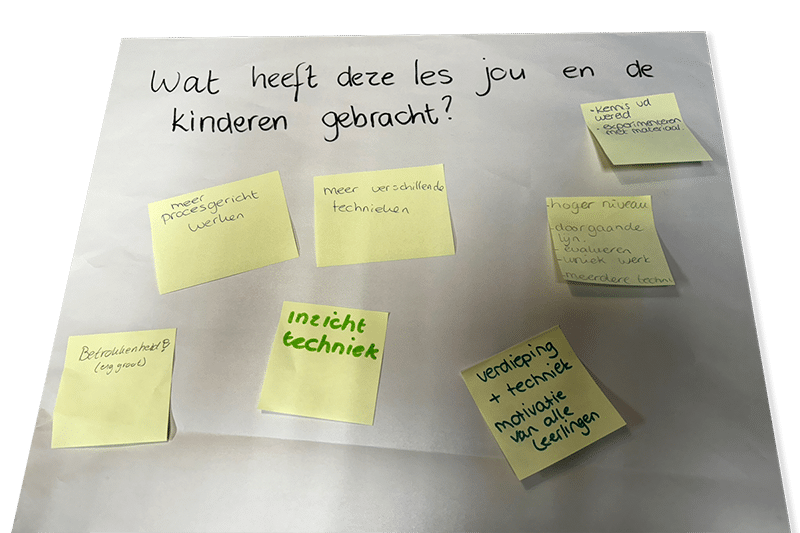 Wat heeft deze les jou en de
kinderen gebracht?
- Kennis vd
wereld
- experimenteren
met materiaal.
meer
procesgericht
werken
meer verschillende
technieken
- hoger niveau
- doorgaande
lijn.
- evalueren
- uniek werk
- meerdere techni
Betrokkenheid!
(erg groot)
inzicht
techniek
verdieping
+ techniek
motivatie
van alle
leerlingen